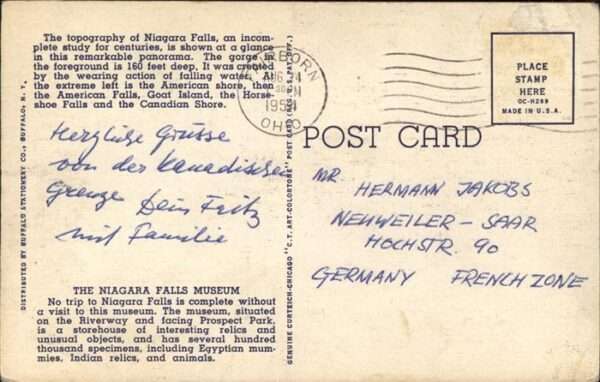 The topography of Niagara Falls, an incom-
plete study for centuries, is shown at a glance
in this remarkable panorama. The gorge in
the foreground is 160 feet deep. It was created
by the wearing action of falling water. At
the extreme left is the American shore, then
the American Falls, Goat Island, the Horse-
shoe Falls and the Canadian Shore.
Herzliche Grüsse
von der kanadischen
Grenze Dein Fritz
mit Familie
THE NIAGARA FALLS MUSEUM
No trip to Niagara Falls is complete without
a visit to this museum. The museum, situated
on the Riverway and facing Prospect Park,
is a storehouse of interesting relics and
unusual objects, and has several hundred
thousand specimens, including Egyptian mum-
mies. Indian relics, and animals.
DISTRIBUTED BY BUFFALO STATIONERY CO., BUFFALO, N. Y.
GENUINE CURTEICH-CHICAGO "C. T. ART-COLORTONE" POST CARD (REG. U.S. PAT. OFF.)
1954
OHIO
POST CARD
PLACE
STAMP
HERE
OC-H269
MADE IN U.S.A.
MR.
HERMANN JAKOBS
NEUWEILER - SAAR
HOCHSTR. 90
GERMANY FRENCH ZONE